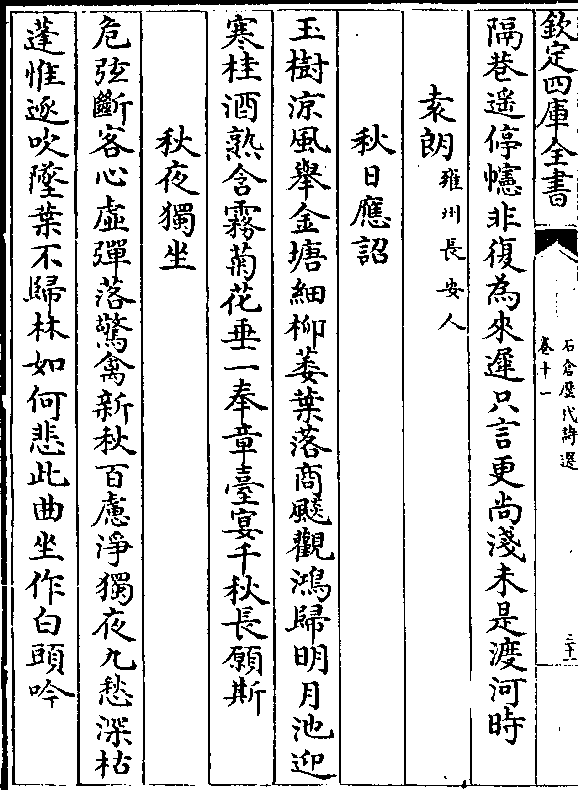 欽定四庫全書
石倉歷代詩選
卷十一
三十一
隔巷遥停幰非復為來遲只言更尚淺未是渡河時
袁朗雍州長安人
秋日應詔
玉樹凉風舉金塘細柳萎葉落商飈觀鴻歸明月池迎
寒桂酒熟含霧菊花垂一奉章臺宴千秋長願斯
秋夜獨坐
危弦斷客心虛彈落驚禽新秋百慮淨獨夜九愁深枯
蓬惟逐吹墜葉不歸林如何悲此曲坐作白頭吟